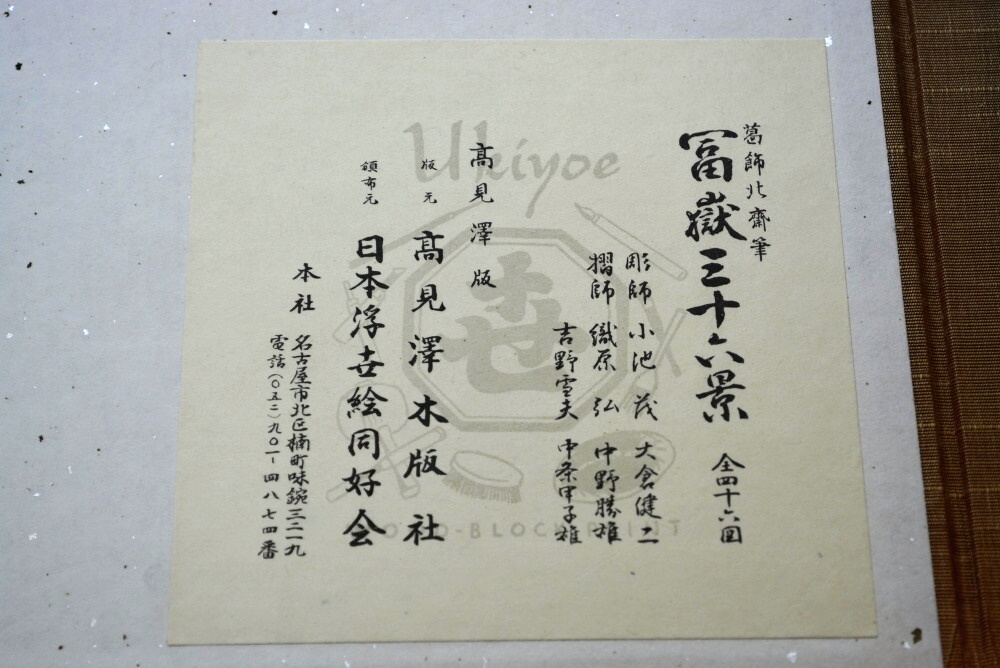 葛飾北齋筆
冨嶽三十六景 全四十六図
彫師 小池茂 大倉健二
摺師 織原弘 中野勝雄
吉野雪夫 中条甲子雄
高見澤版
版元 高見澤木版社
頒布元 日本浮世絵同好会
本社 名古屋市北区楠町味鋺三二一九
電話(〇五二)九〇一-四八七四番
Ukiyoe
WOOD-BLOCK PRINT